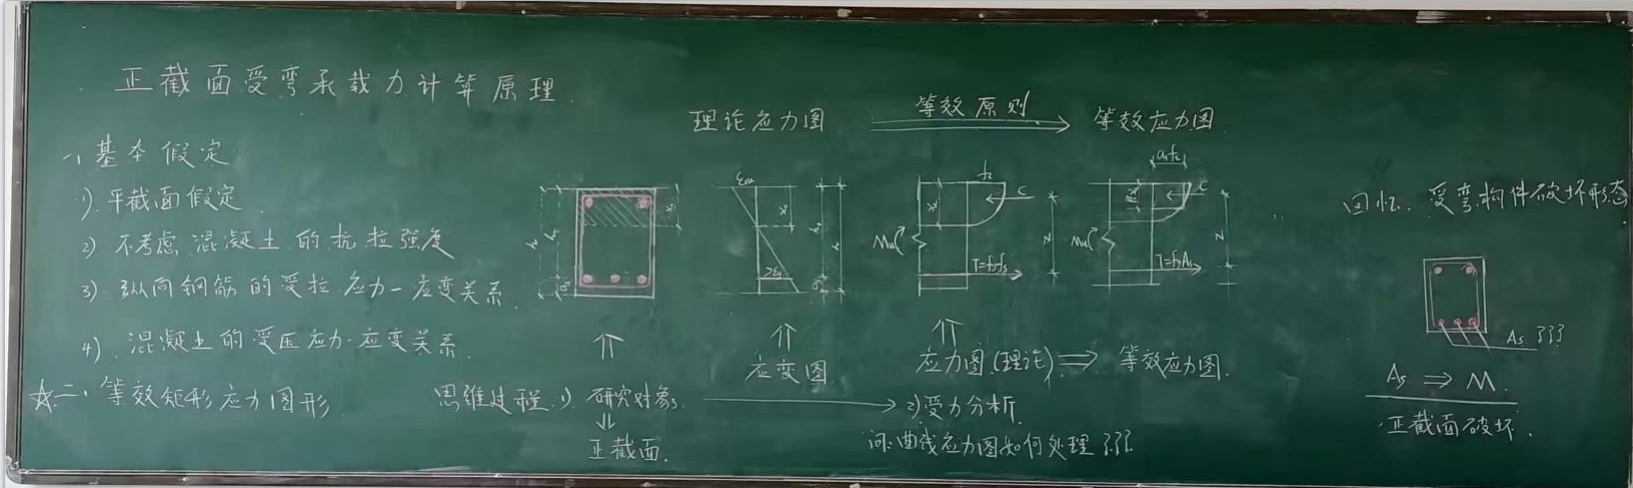 正截面受弯承载力计算原理
一、基本假定
1). 平截面假定.
2) 不考虑混凝土的抗拉强度
3) 纵向钢筋的受拉应力-应变关系.
4). 混凝土的受压应力-应变关系.
☆二、等效矩形应力图形
理论应力图
等效原则
等效应力图
fc
α1fc
εcu
xc
xc
C
C
Mu
Mu
Z
Z
h
h0
as
T=fyAs
T=fyAs
应变图
应力图(理论) ⇒ 等效应力图.
思维过程. 1) 研究对象.
2)受力分析.
正截面.
问:曲线应力图如何处理???
回忆. 受弯构件破坏形态
As ???
As ⇒ M.
正截面破坏.